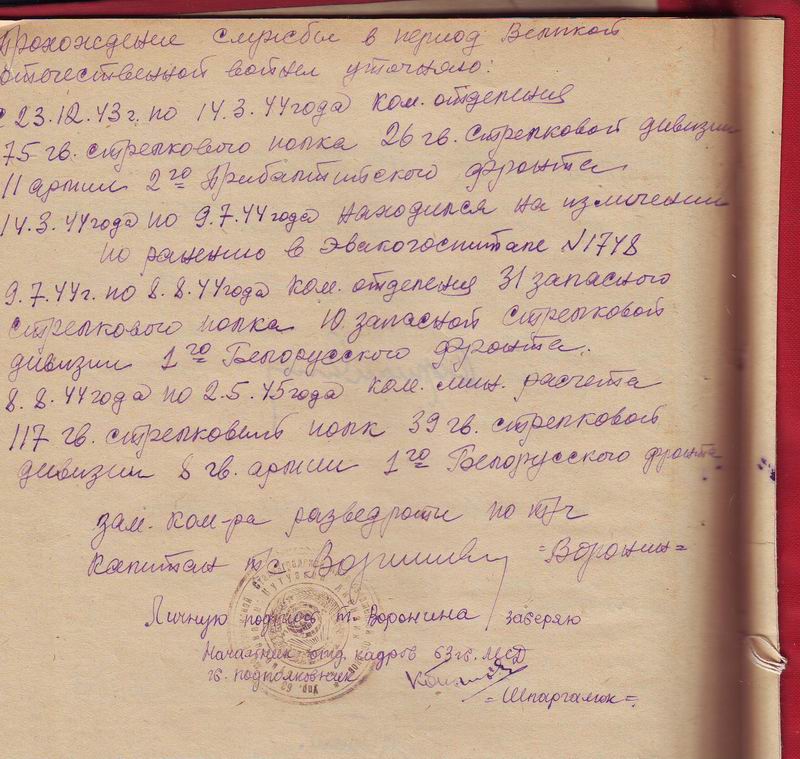 Прохождение службы в период Великой
отечественной войны уточняю:
с 23.12.43г. по 14.3.44года ком. отделения
75 гв. стрелкового полка 26 гв. стрелковой дивизии
11 армии 2го Прибалтийского фронта
14.3.44года по 9.7.44года находился на излечении
по ранению в Эвакогоспитале №1748
9.7.44г. по 8.8.44года ком. отделения 31 запасного
стрелкового полка 10 запасной стрелковой
дивизии 1го Белорусского фронта.
8.8.44года по 2.5.45года ком. мин. расчета
117 гв. стрелковый полк 39 гв. стрелковой
дивизии 8 гв. армии 1го Белорусского фронта
зам. ком-ра разведроты по т/ч
капитан т/с =Воронин=
Личную подпись т. Воронина заверяю
Начальник отд. кадров 63 гв. МСД
гв. подполковник
=Шпаргалюк=